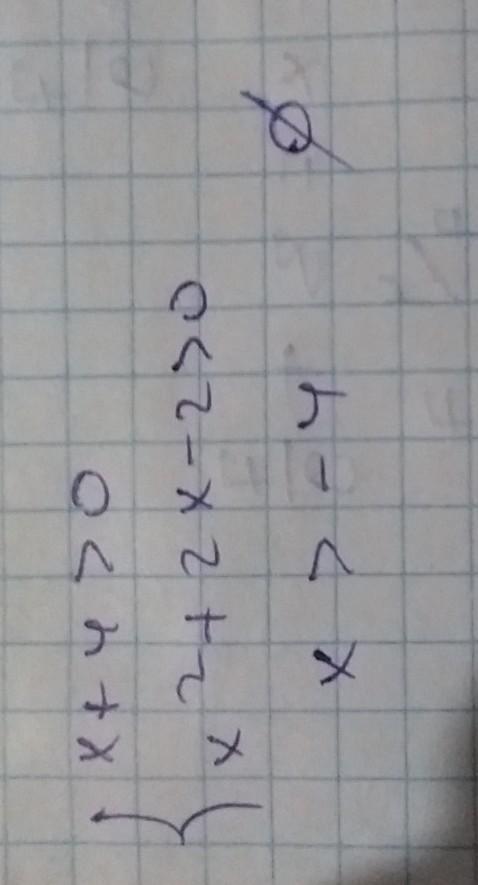 x + 4 > 0
x² + 2x - 2 > 0
x > -4 ∅